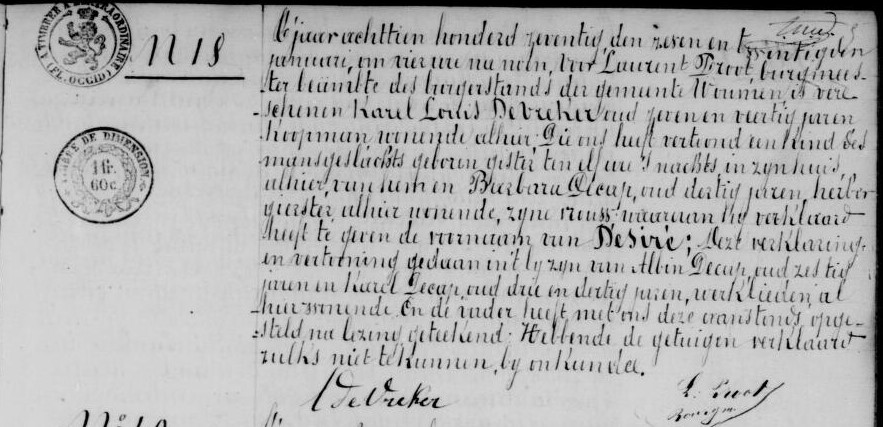 N 18
TIMBRE EXTRAORDINAIRE
(FL. OCCID)
DE DIMENSION
1 fr.
60c
'T jaar achttien honderd zeventig, den zeven en twintigsten
januari, om vier ure na noen, voor Laurent Proot, burgmees-
ter beämbte des burgerstands der gemeente Woumen, is vere
schenen Karel Louis DeVreker oud zeven en veertig jaren
koopman wonende alhier. Die ons heeft vertoond een kind des
mansgeslachts geboren gister ten elf ure 's nachts in zyn huis
alhier, van hem en Barbara Decap, oud dertig jaren herber
gierster alhier wonende, zyne vrouw waaraan hy verklaard
heeft te geven de voornaam van Desiré: Deze verklaring
en vertooning gedaan in 't by zyn van Albin Decap, oud zestig
jaren en Karel Decap, oud drie en dertig jaren, werklieden, al
hier wonende. En de vader heeft met ons deze evanstonds opge-
steld na lezing geteekend: Hebbende de getuigen verklaard
zulks niet te kunnen, by onkunde.
C DeVreker
L. Proot